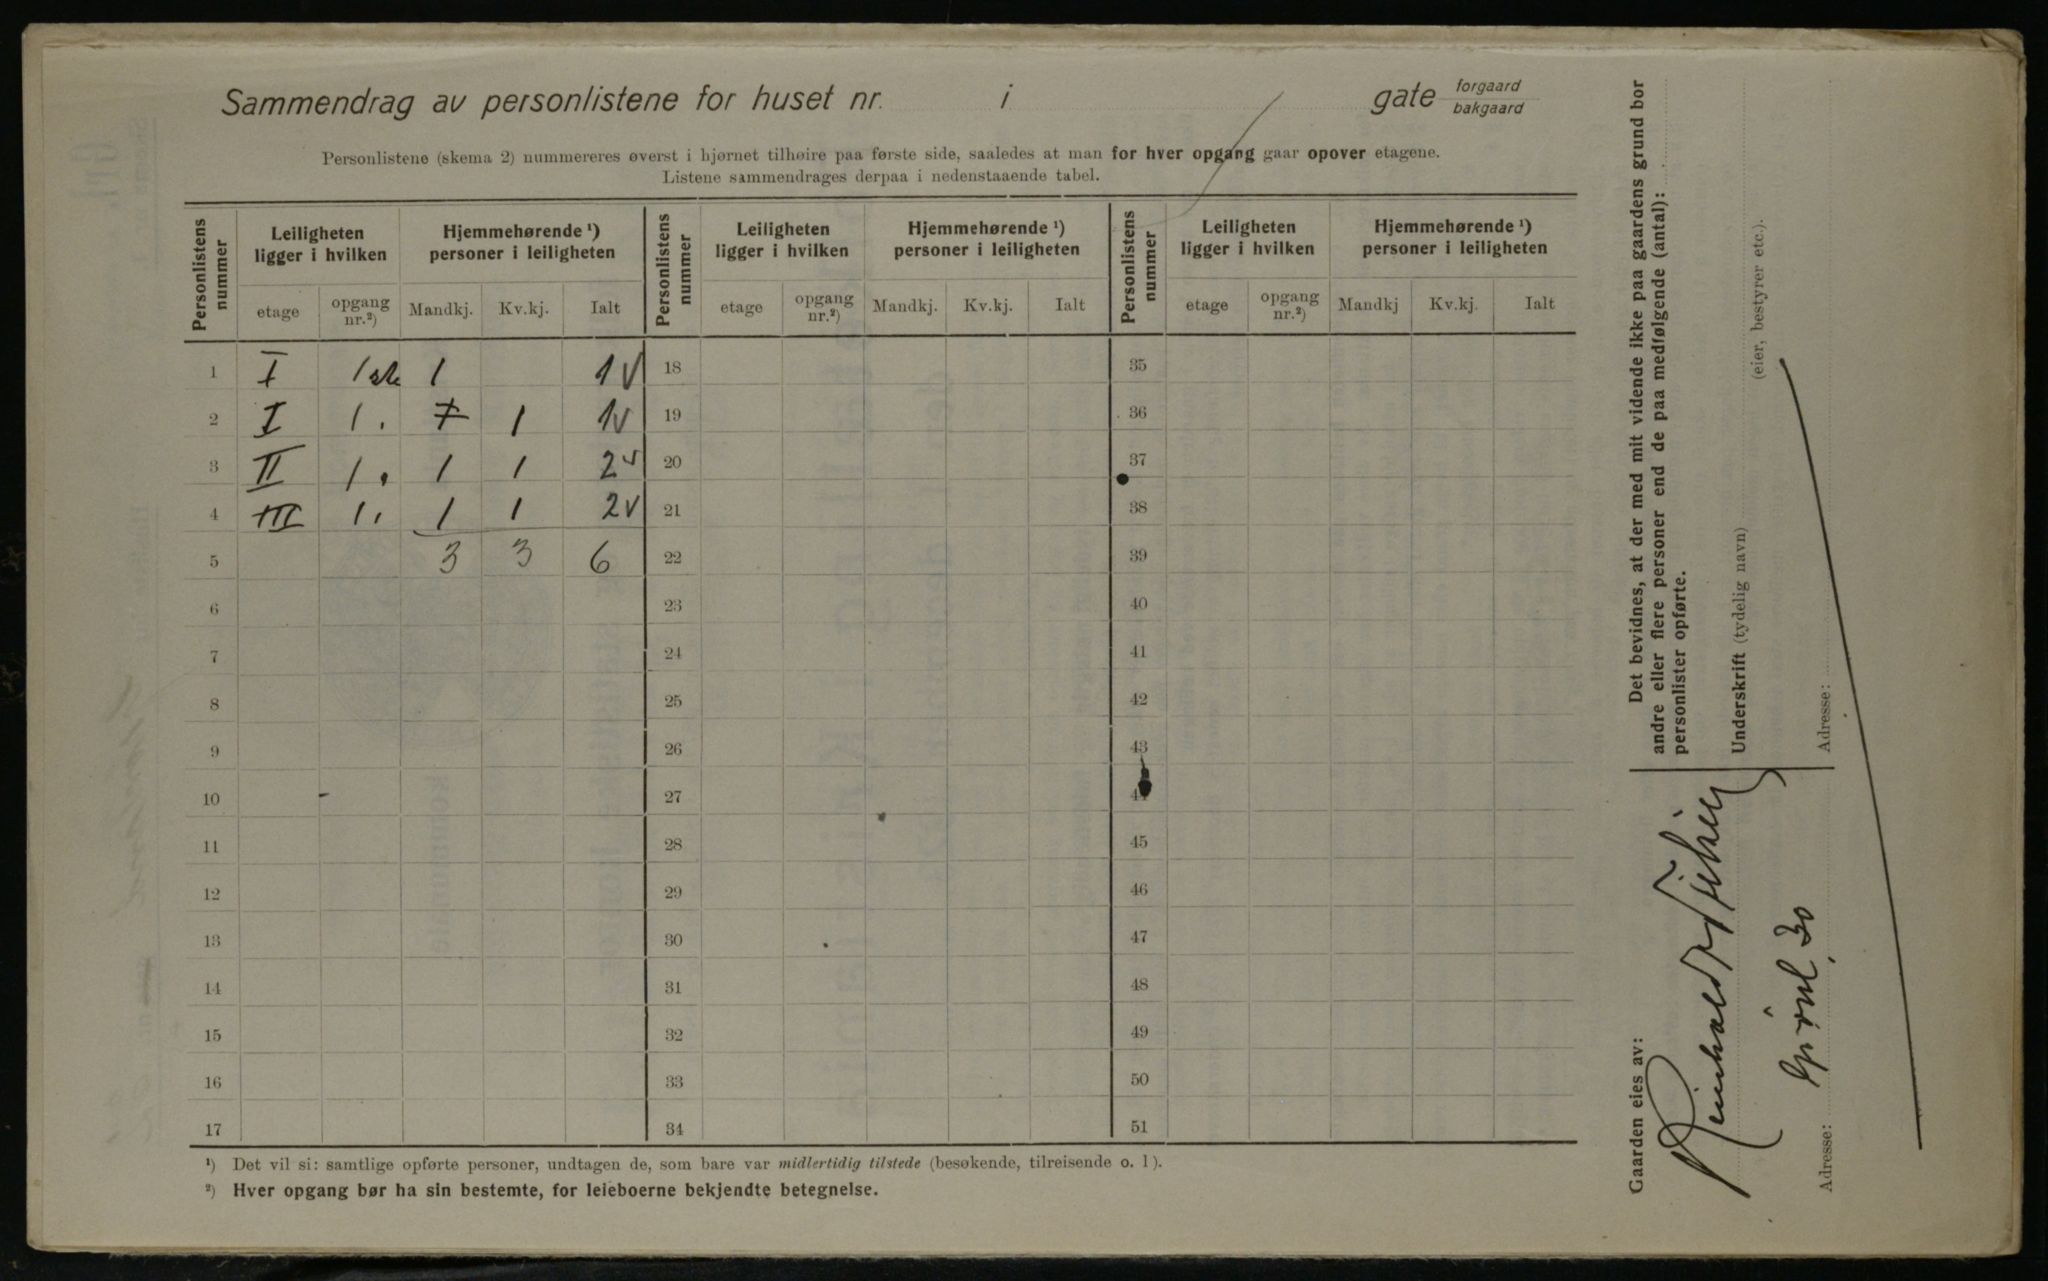 Sammendrag av personlistene for huset nr. i gate forgaard bakgaard
Personlistene (skema 2) nummereres øverst i hjørnet tilhøire paa første side, saaledes at man for hver opgang gaar opover etagene.
Listene sammendrages derpaa i nedenstaaende tabel.
Personlistens nummer Leiligheten ligger i hvilken Hjemmehørende ¹) personer i leiligheten Personlistens nummer Leiligheten ligger i hvilken Hjemmehørende ¹) personer i leiligheten Personlistens nummer Leiligheten ligger i hvilken Hjemmehørende ¹) personer i leiligheten
etage opgang nr.²) Mandkj. Kv.kj. Ialt etage opgang nr.²) Mandkj. Kv.kj. Ialt etage opgang nr.²) Mandkj Kv.kj. Ialt
1 I 1 1 1 v 18 35
2 I 1 . 1 1 v 19 36
3 II 1 . 1 1 2 v 20 37
4 III 1 . 1 1 2 v 21 38
5 3 3 6 22 39
6 23 40
7 24 41
8 25 42
9 26 43
10 27 44
11 28 45
12 29 46
13 30 47
14 31 48
15 32 49
16 33 50
17 34 51
¹) Det vil si: samtlige opførte personer, undtagen de, som bare var midlertidig tilstede (besøkende, tilreisende o. l).
²) Hver opgang bør ha sin bestemte, for leieboerne bekjendte betegnelse.
Det bevidnes, at der med mit vidende ikke paa gaardens grund bor
andre eller flere personer end de paa medfølgende (antal):
personlister opførte.
Underskrift (tydelig navn)
(eier, bestyrer etc.).
Adresse:
Gaarden eies av:
Reinhold
Adresse: 30